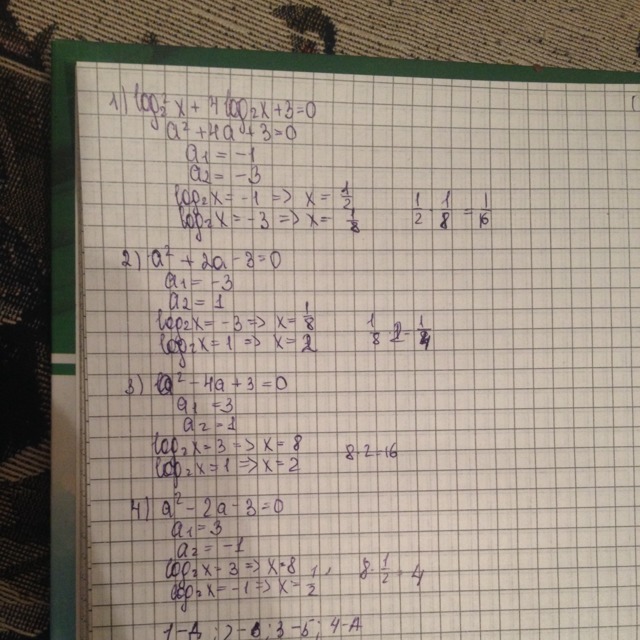 1) log₂²x + 4log₂x + 3 = 0
a² + 4a + 3 = 0
a₁ = -1
a₂ = -3
log₂x = -1 => x = 1/2
log₂x = -3 => x = 1/8 1/2 · 1/8 = 1/16
2) a² + 2a - 3 = 0
a₁ = -3
a₂ = 1
log₂x = -3 => x = 1/8
log₂x = 1 => x = 2 1/8 · 2 = 1/4
3) a² - 4a + 3 = 0
a₁ = 3
a₂ = 1
log₂x = 3 => x = 8
log₂x = 1 => x = 2 8·2=16
4) a² - 2a - 3 = 0
a₁ = 3
a₂ = -1
log₂x = 3 => x = 8
log₂x = -1 => x = 1/2 8 · 1/2 = 4
1-Д; 2-В; 3-Б; 4-А